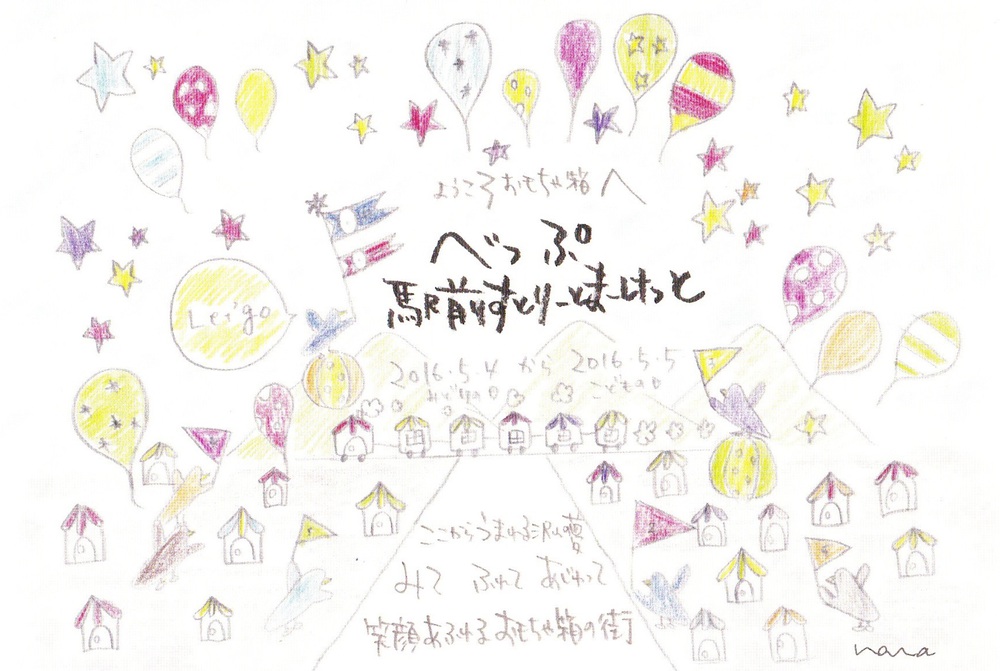 ようこそおもちゃ箱へ
べっぷ
駅前すとりーとまーけっと
Lei'go
2016.5.4 から 2016.5.5
みどりの日 こどもの日
ここからうまれる沢山の夢
みて ふれて あじわって
笑顔あふれるおもちゃ箱の街
nana